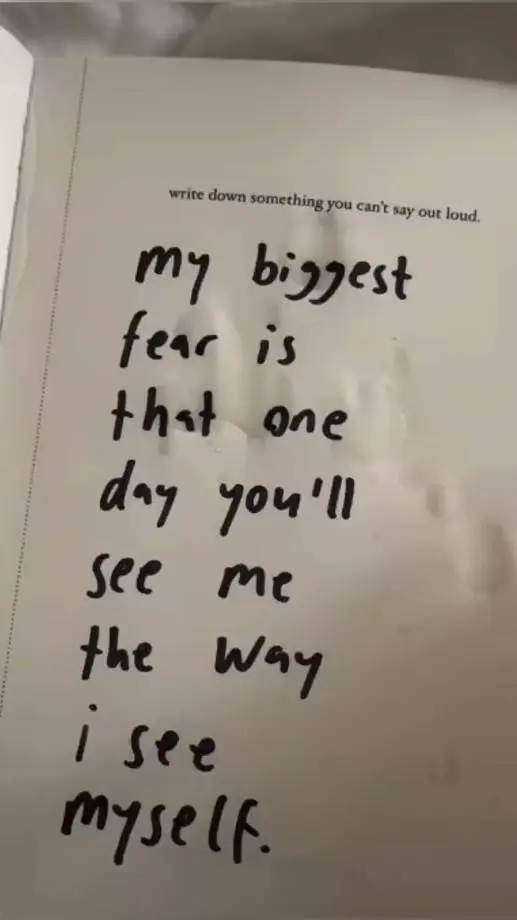 write down something you can't say out loud.
my biggest
fear is
that one
day you'll
see me
the way
i see
myself.